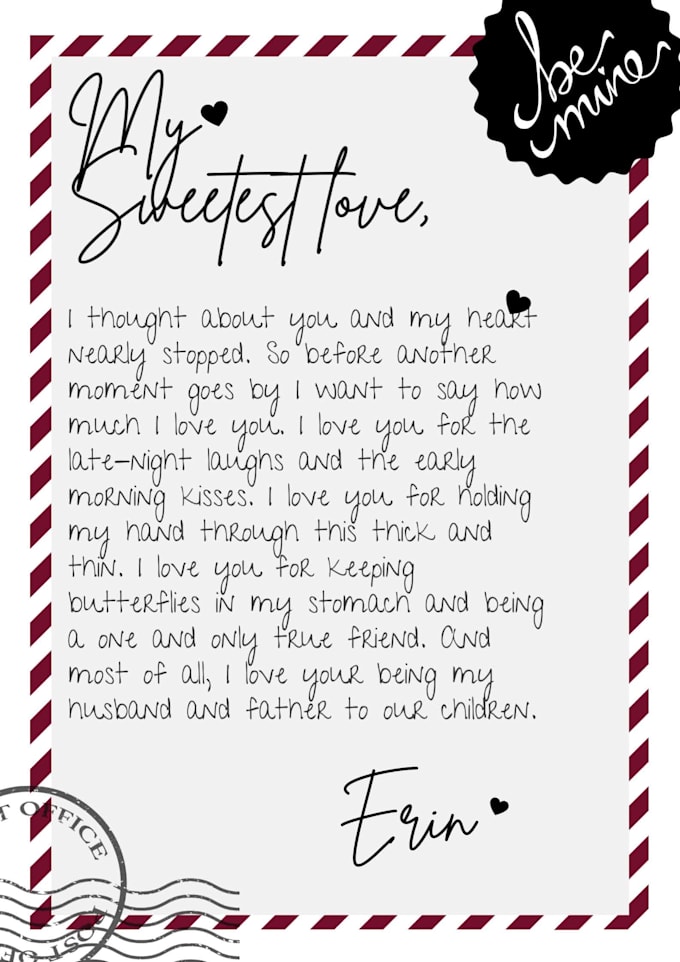 be
mine
My
Sweetest love,
I thought about you and my heart
nearly stopped. So before another
moment goes by I want to say how
much I love you. I love you for the
late-night laughs and the early
morning kisses. I love you for holding
my hand through this thick and
thin. I love you for keeping
butterflies in my stomach and being
a one and only true friend. And
most of all, I love your being my
husband and father to our children.
Erin
T OFFICE
POST OF